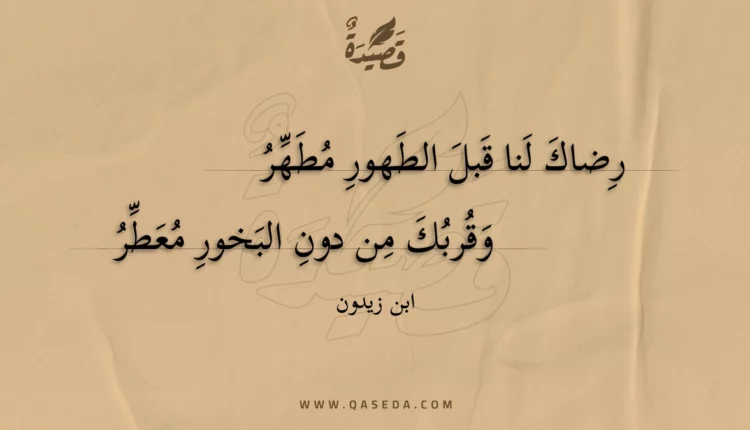 قَصِيْدَةٌ
رِضاكَ لَنا قَبلَ الطَهورِ مُطَهِّرُ
وَقُربُكَ مِن دونِ البَخورِ مُعَطِّرُ
ابن زيدون
WWW.QASEDA.COM